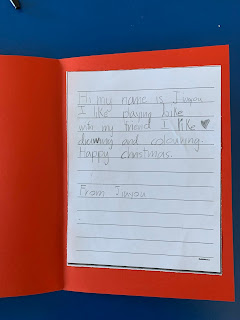 Hi my name is Jinyou
I like playing bike
with my friend I like ♥
drawing and colouring.
Happy christmas.
From Jinyou